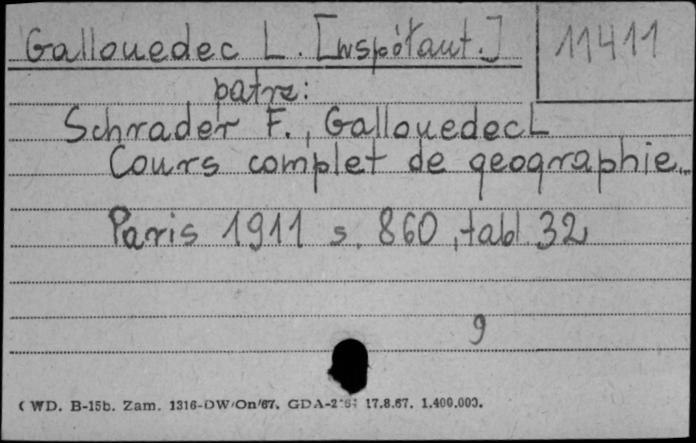 Gallouedec L. [współaut.]
11411
patrz:
Schrader F., Gallouedec L
Cours complet de geographie..
Paris 1911 s. 860, tabl. 32
9
(WD. B-15b. Zam. 1316-DW/On/67. 17.8.67. 1.400.000.